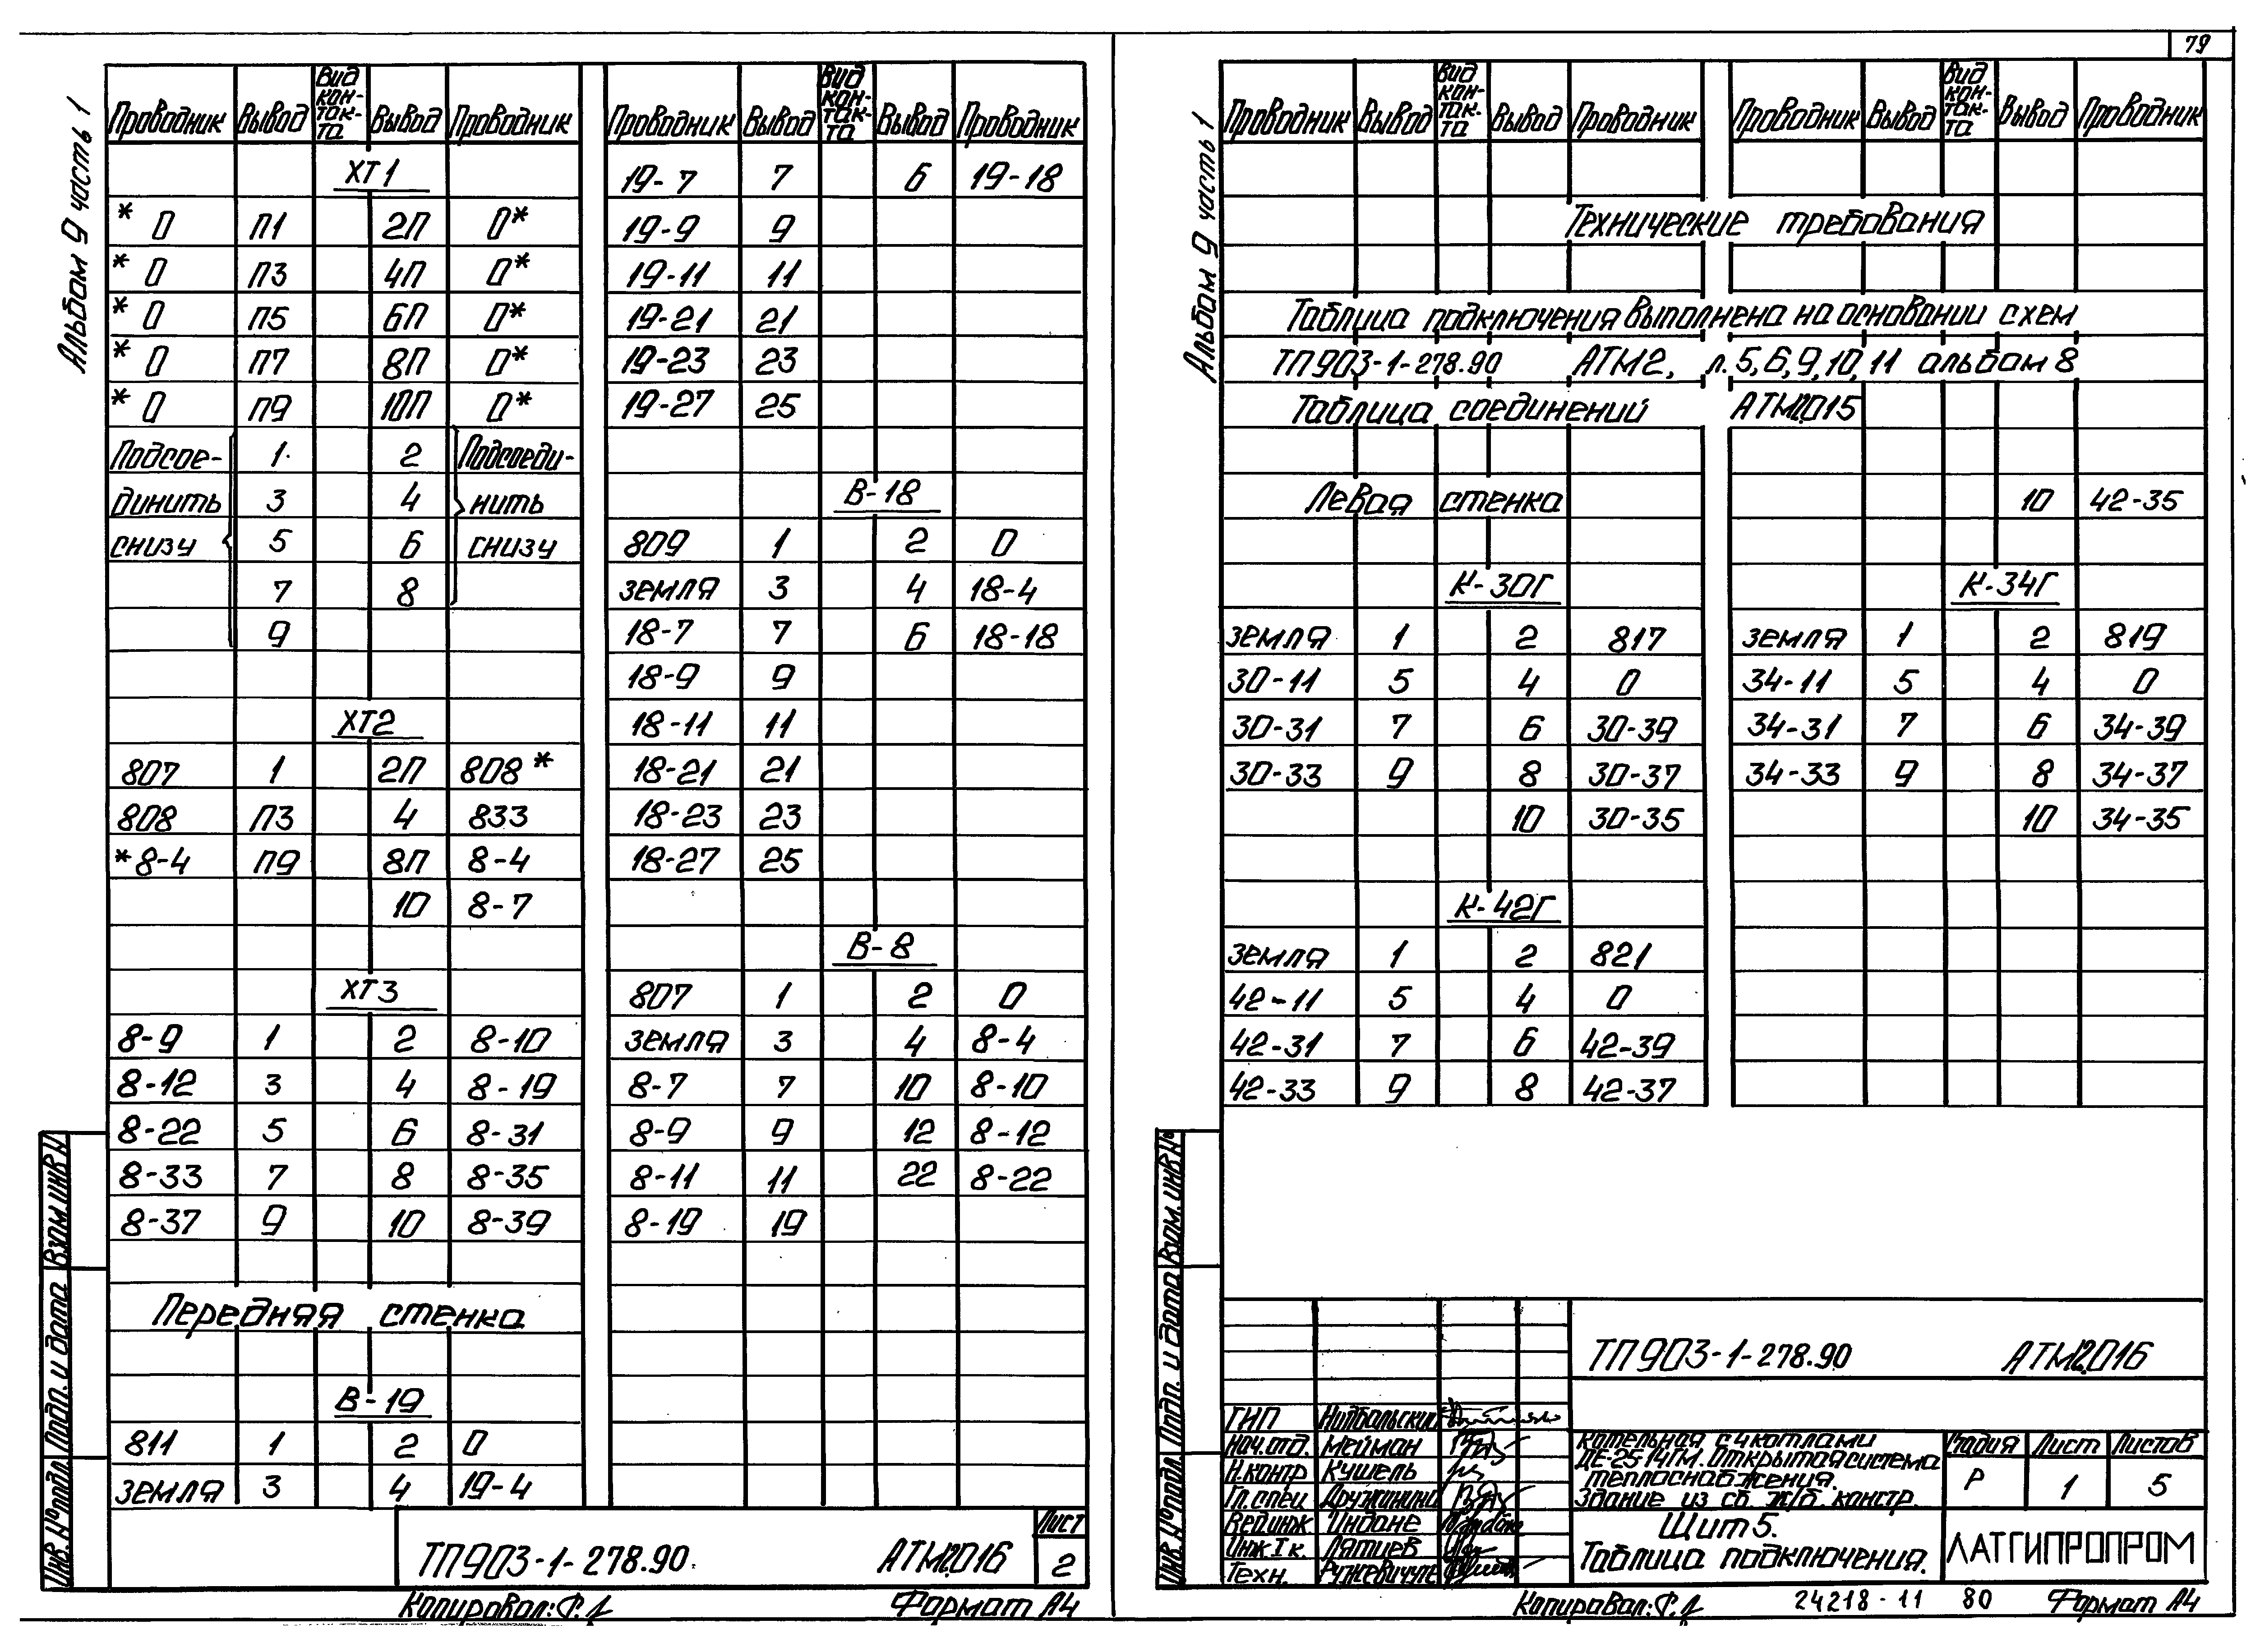 79
Альбом 9 часть 1
Проводник Вывод Вид кон-так-та Вывод Проводник
ХТ1
* 0 П1 2П 0*
* 0 П3 4П 0*
* 0 П5 6П 0*
* 0 П7 8П 0*
* 0 П9 10П 0*
Подсое- 1 2 Подсоеди-
динить 3 4 нить
снизу 5 6 снизу
7 8
9
ХТ2
807 1 2П 808*
808 П3 4 833
*8-4 П9 8П 8-4
10 8-7
ХТ3
8-9 1 2 8-10
8-12 3 4 8-19
8-22 5 6 8-31
8-33 7 8 8-35
8-37 9 10 8-39
Передняя стенка
В-19
811 1 2 0
земля 3 4 19-4
Проводник Вывод Вид кон-так-та Вывод Проводник
19-7 7 6 19-18
19-9 9
19-11 11
19-21 21
19-23 23
19-27 25
В-18
809 1 2 0
земля 3 4 18-4
18-7 7 6 18-18
18-9 9
18-11 11
18-21 21
18-23 23
18-27 25
В-8
807 1 2 0
земля 3 4 8-4
8-7 7 10 8-10
8-9 9 12 8-12
8-11 11 22 8-22
8-19 19
Взам. инв №
Подп. и дата
Инв. № подл.
ТП903-1-278.90 АТМ2.016
Лист
2
Копировал:
Формат А4
Альбом 9 часть 1
Проводник Вывод Вид кон-так-та Вывод Проводник
Проводник Вывод Вид кон-так-та Вывод Проводник
Технические требования
Таблица подключения выполнена на основании схем
ТП903-1-278.90 АТМ2, л. 5, 6, 9, 10, 11 альбом 8
Таблица соединений АТМ2.015
Левая стенка
К-30Г
земля 1 2 817
30-11 5 4 0
30-31 7 6 30-39
30-33 9 8 30-37
10 30-35
К-42Г
земля 1 2 821
42-11 5 4 0
42-31 7 6 42-39
42-33 9 8 42-37
10 42-35
К-34Г
земля 1 2 819
34-11 5 4 0
34-31 7 6 34-39
34-33 9 8 34-37
10 34-35
Взам. инв №
Подп. и дата
Инв. № подл.
ТП903-1-278.90 АТМ2.016
ГИП
Нач. отд. Мейман
Н. контр Кушель
Гл. спец Дружинина
Вед инж Индане
Инж I к. Лятиев
Техн.
Котельная с 4 котлами
ДЕ-25-14ГМ. Открытая система
теплоснабжения.
Здание из сб. ж/б. констр.
Стадия Лист Листов
Р 1 5
Щит 5.
Таблица подключения.
ЛАТГИПРОПРОМ
Копировал:
24218-11 80
Формат А4